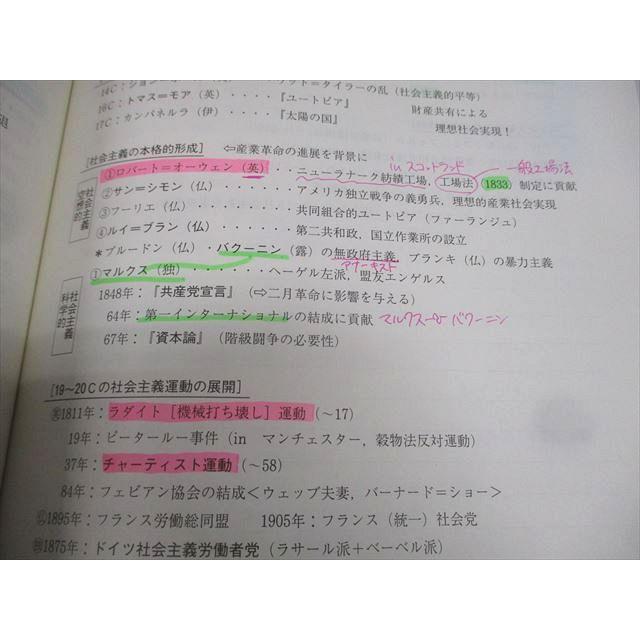 14C：ジョン＝ボール（英）・・・・ワット＝タイラーの乱（社会主義的平等）
16C：トマス＝モア（英）・・・・『ユートピア』　財産共有による
17C：カンパネルラ（伊）・・・・『太陽の国』　理想社会実現！
[社会主義の本格的形成] ⇦産業革命の進展を背景に in スコットランド 一般工場法
空想的社会主義
①ロバート＝オーウェン（英）・・ニューラナーク紡績工場，工場法 1833 制定に貢献
②サン＝シモン（仏）・・・・・・アメリカ独立戦争の義勇兵，理想的産業社会実現
③フーリエ（仏）・・・・・・・・共同組合的ユートピア（ファーランジュ）
④ルイ＝ブラン（仏）・・・・・・第二共和政，国立作業所の設立
＊プルードン（仏）・バクーニン（露）の無政府主義，ブランキ（仏）の暴力主義
アナーキスト
科学的社会主義
①マルクス（独）・・・・・・・ヘーゲル左派，盟友エンゲルス
1848年：『共産党宣言』（⇨二月革命に影響を与える）
64年：第一インターナショナルの結成に貢献 マルクス⇔バクーニン
67年：『資本論』（階級闘争の必要性）
[19〜20Cの社会主義運動の展開]
㊤1811年：ラダイト［機械打ち壊し］運動（〜17）
19年：ピータールー事件（in マンチェスター，穀物法反対運動）
37年：チャーティスト運動（〜58）
84年：フェビアン協会の結成＜ウェッブ夫妻，バーナード＝ショー＞
1895年：フランス労働総同盟　1905年：フランス（統一）社会党
1875年：ドイツ社会主義労働者党（ラサール派＋ベーベル派）